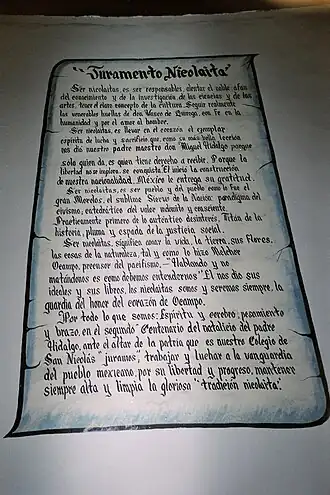 "Juramento Nicolaita"
Ser nicolaitas, es ser responsables, alentar el noble afan
del conocimiento y de la investigación de las ciencias y de las
artes, tener el claro concepto de la cultura. Seguir realmente
las venerables huellas de don Vasco de Quiroga, con Fe en la
humanidad y por el amor al hombre.
Ser nicolaitas, es llevar en el corazón el ejemplar
espíritu de lucha y sacrificio que como su más bella lección
nos dio nuestro padre maestro don Miguel Hidalgo porque
solo quien da, es quien tiene derecho a recibir. Porque la
libertad no se implora, se conquista. El inició la construcción
de nuestra nacionalidad. México le entrega su gratitud.
Ser nicolaitas, es ser pueblo y del pueblo como lo Fue el
gran Morelos, el sublime Siervo de la Nación: paradigma del
civismo, catedrático del valor indómito y consciente.
Prácticamente primero de lo auténtico desinterés, Titán de la
historia, pluma y espada de la justicia social.
Ser nicolaitas, significa amar la vida, la tierra, sus Flores,
las cosas de la naturaleza, tal y como lo hizo Melchor
Ocampo, precursor del pacifismo, Hablando y no
matándonos es como debemos entendernos" El nos dio sus
ideales y sus libros, los nicolaitas somos y seremos siempre, la
guardia del honor del corazón de Ocampo.
Por todo lo que somos: Espíritu y cerebro, pensamiento
y brazo, en el segundo Centenario del natalicio del padre
Hidalgo, ante el altar de la patria que es nuestro Colegio de
San Nicolás "juramos" trabajar y luchar a la vanguardia
del pueblo mexicano, por su libertad y progreso, mantener
siempre alta y limpia la gloriosa "tradición nicolaita".